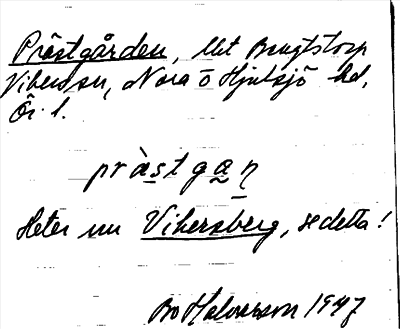 Prästgården, litet Bengtstorp
Vikers sn, Nora o Hjulsjö hd,
Ör. l.
prästgan
Heter nu Vikersberg, se detta!
Bo Halvarsson 1947